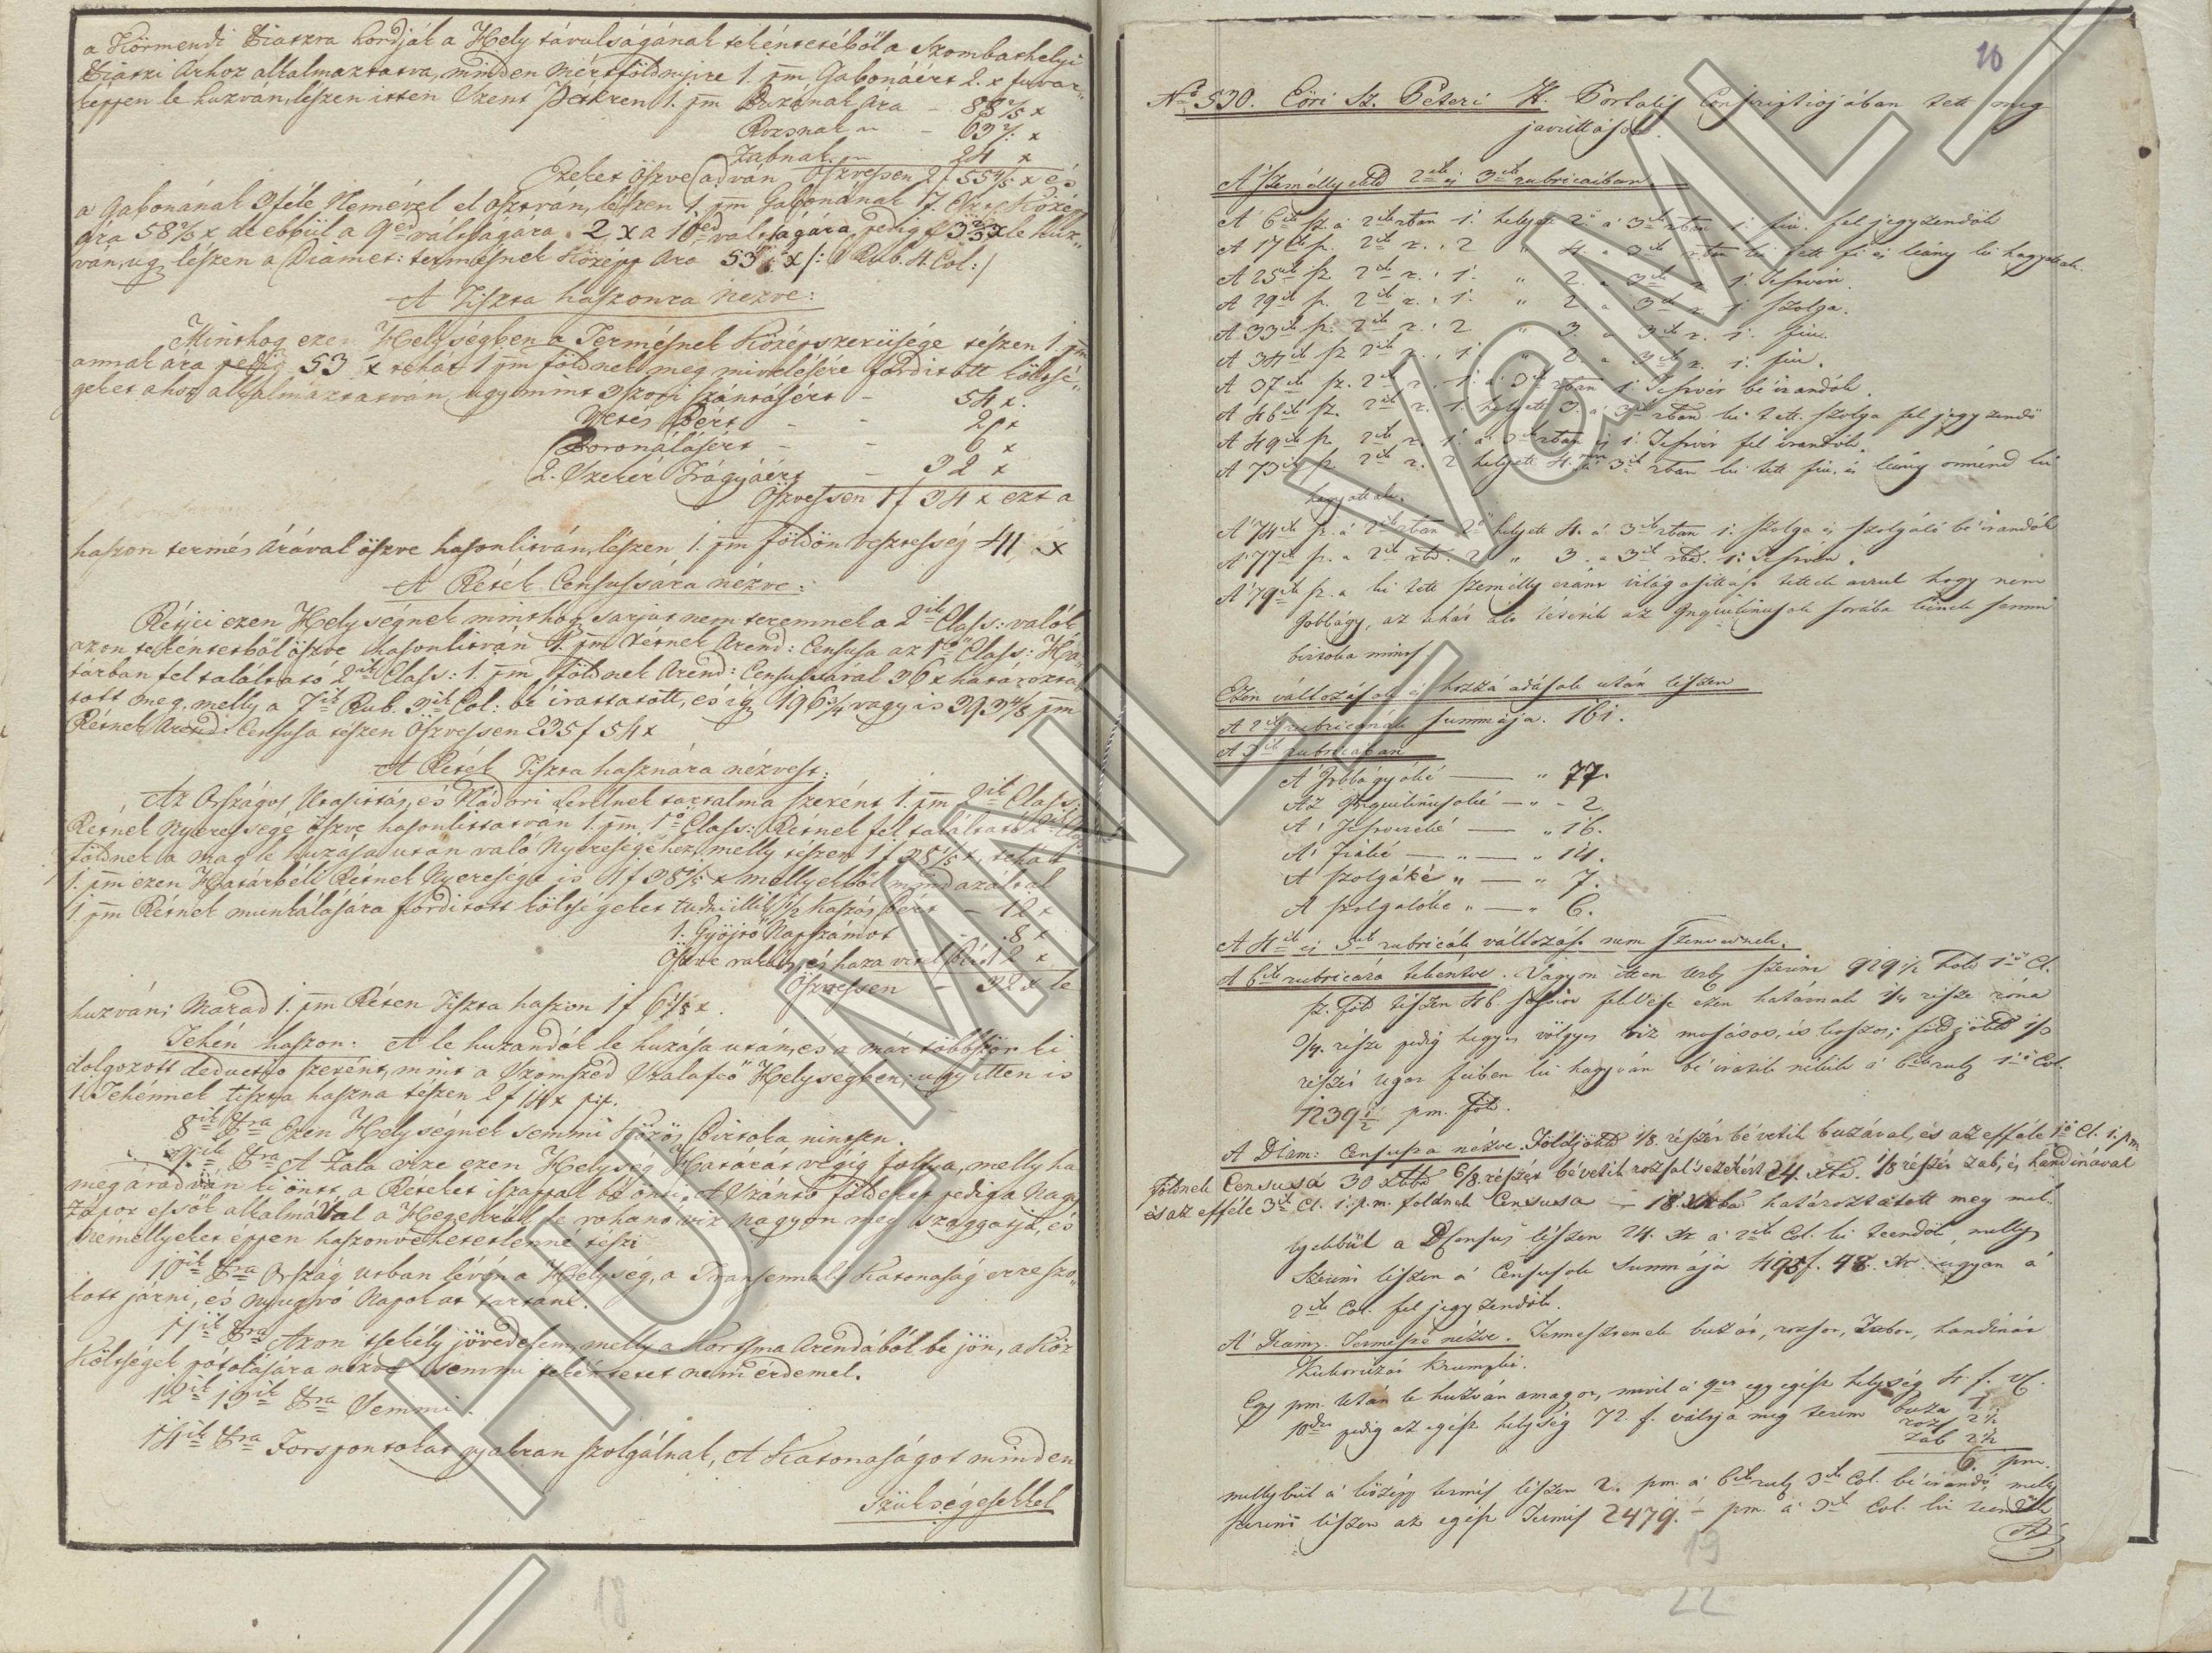 a Körmendi Piatzra hordják a Hely távulságának tekéntetéből a Szombathelyi
Piatzi Arhoz alkalmaztatva, minden mértföldnyire 1. pm Gabonáért 2. x fuvar„
képpen le huzván, lészen itten Szent Péteren 1. pm Buzának Ára – 88 2/5 x
Rozsnak „ – 63 x
Zabnak „ 24 x
Ezeket öszve adván Öszvessen 2 f 55 4/5 x és
a Gabonának 3 féle Nemével el osztván, lészen 1. pm Gabonának Közép
Ára 58 x de ebbül a 9ed váltságára 2 x a 10ed váltságára pedig 3 x le huz„
ván, ug lészen a Diamet: termésnek Középp Ára 53 x /: Rub. 4. Col: /
A Tiszta haszonra nézve:
Minthog ezen Helységben a Termésnek Középszerüsége tészen 1. pm
annak ára pedig 53 x tehát 1 pm földnek meg mivelésére forditott költsé„
geket ahoz alkalmaztatván, ugymint 3szori szántásért – 54 x.
Vetés Bért – – 2 x
Boronálásért – – 6 x
2. Szekér Trágyáért – 32 x
Öszvessen 1 f 34 x ezt a
haszon termés Árával öszve hasonlitván, lészen 1. pm földön veszteség 41 x
A Rétek Censussára nézve:
Rétjei ezen Helységnek minthog sarjut nem teremnek a 2ik Class: valók
azon tekéntetből öszve hasonlitván 1. pm rétnek Arend: Censusa az 1ő Class: Ha„
tárban fel találtató 2ik Class: 1. pm földnek Arend: Censussával 36 x határozta„
tott meg, melly a 7ik Rub. 3ik Col: bé irattatott, és ig 196 3/4 vagy is 393 4/8 pm
Rétnek Arend: Censusa tészen Öszvessen 235 f 54 x
A Rétek Tiszta hasznára nézvest:
Az Országos Utasittás, és Nádori Levelnek tartalma szerént 1. pm 2ik Class:
Rétnek Nyeressége öszve hasonlittatván 1. pm 1ő Class: Rétnek fel találtató
földnek a mag le huzása után való Nyereségéhez, melly tészen 1 f 38 1/5 x, tehát
1. pm ezen Határbéli Rétnek Nyeresége is 1 f 38 1/5 x mellyekből mind azáltal
1. pm Rétnek munkálására forditott költségeket tudniillik 1/2 Kaszás bért – 12 x
1. Gyüjtő Napszámot – 8 x
Öszve rakás, és haza vitel bér 12 x
Öszvessen – 32 x le
huzván; Marad 1. pm Réten Tiszta haszon 1 f 6 1/5 x.
Tehén haszon: A le huzandók le huzása után, és a már többször ki
dolgozott deductio szerént, mint a Szomszéd Szalafeő Helységben; ugy itten is
1. Tehénnek tiszta haszna tészen 2 f 14 x
8ik Tra Ezen Helységnek semmi Közös Birtoka nintsen.
9ik Tra A Zala vize ezen Helység Határát végig follya, melly ha
meg áradván ki önt, a Réteket iszappal bé önti. A Szántó földeket pedig a Nagy
Zápor essők alkalmával a Hegekrül le rohanó viz nagyon meg szaggatja, és
némellyeket éppen haszonvehetetlenné teszi
10ik Tra Ország utban lévén a Helység, a Transennalis Katonaság erre szo„
kott járni, és nyugvó Napokat tartani.
11ik Tra Azon tsekély jövedelem, melly a Kortsma Arendából be jön, a Köz
Költségek pótolására nézve semmi tekéntetet nem érdemel.
12ik 13ik Tra Semmi.
14ik Tra Forspontokat gyakran szolgálnak, A Katonaságot minden
Szükségesekkel
18
16
No 530. Eöri Sz. Peteri H. Portalis Conscriptiojában tett meg
javittások.
A Személlyekűl 2ik és 3ik rubricaiban.
A 6ik sz. a 2ik rban 1. helyett 2. a 3ik rban 1. fiu. fel jegyzendők
A 17ik sz. 2ik r. 2 „ 4. a 3ik rban ki tett fi és leány ki hagyattak.
A 25ik sz. 2ik r. 1. „ 2. a 3ik r. 1. Testvér.
A 29ik sz. 2ik r. 1. „ 2. a 3ik r. 1. szolga.
A 33ik sz. 2ik r. 2 „ 3. a 3ik r. 1. fiu.
A 34ik sz. 2ik r. 1. „ 2. a 3ik r. 1. fiu.
A 37ik sz. 2ik r. 1. a 3ik rban 1. Testvér bé irandók.
A 46ik sz. 2ik r. 1. helyett 3. a 3ik rban ki tett szolga fel jegyzendő
A 49ik sz. 2ik r. 1. a 3ik rban is 1. Testvér fel irandók.
A 73ik sz. 2ik r. 2 helyett 4. a 3ik rban ki tett fiu, és leány onnénd ki
hagyattak.
A 74ik sz. a 2ik rban 2ő helyett 4. a 3ik rban 1. szolga és szolgáló bé irandók
A 77ik sz. a 2ik rba. 2 „ 3. a 3ik rba. 1. Testvér.
A 79ik sz. a ki tett személly eránt világosittás tétetik arrul hogy nem
Jobbágy, az után álo tétetik az Inquilinusok sorába kinek semmi
birtoka nints
Ezen változások és hozzá adások után lészen
A 2ik rubricának summája. 161.
A 3ik rubricában
A Jobbágyoké — „ 77.
Az Inquilinusoké — „ – 2
A Testvéreké — „ 16.
A Fiaké — „ — „ 14.
A szolgáké „ — „ 7.
A szolgálóké „ — „ 6.
A 4ik és 5ik rubricák változást nem szenvednek.
A 6ik rubricára tekéntve. Vagyon itten Urb. szerint 929 1/2 hold 1ső Cl.
sz. Föd tészen 46. sessiot felvész ezen határnak 1/4 része róna
3/4. része pedig hegyes völgyes viz mosásos, és koszos; földjökbül 1/3
részét ugar feiben ki hagyván bé iratik nékik a 6ik rub. 1ső Col.
1239 1/2 pm. föd.
A Diam: Censusra nézve. Földjökbűl 1/8. részét bévetik buzával, és az efféle 1ső Cl. 1. pm
földnek Censusa 30 xba 6/8. részét bévetik rozsal s ezekért 24. xba. 1/8 részét zab, és handinával
és az efféle 3ik Cl. 1. pm. földnek Censusa – 18. xba határoztatott meg mel„
lyekbül a Census lészen 24. xr a 2ik Col. ki teendők, melly
szerint lészen a Censusok summája 495 f. 48. xr. ugyan a
2ik Col. fel jegyzendők.
A Diam. Termésre nézve. Termesztenek buzát, rozsot, Zabot, handinát
kukoruzát krumplit.
Egy pm. után le huzván a magot, mivel a 9est egy egész helység 4. f. Vf.
10edet pedig az egész helység 72. f. váltja meg terem buza 1
rozs 2 1/2
zab 2 1/2
6. pm.
mellybül a középp termés lészen 2. pm. a 6ik rub. 3ik Col. bé irandó, melly
szerint lészen az egész Termés 2479. – pm. a 3ik Col. ki teendők
19
22
HU MNL VaML